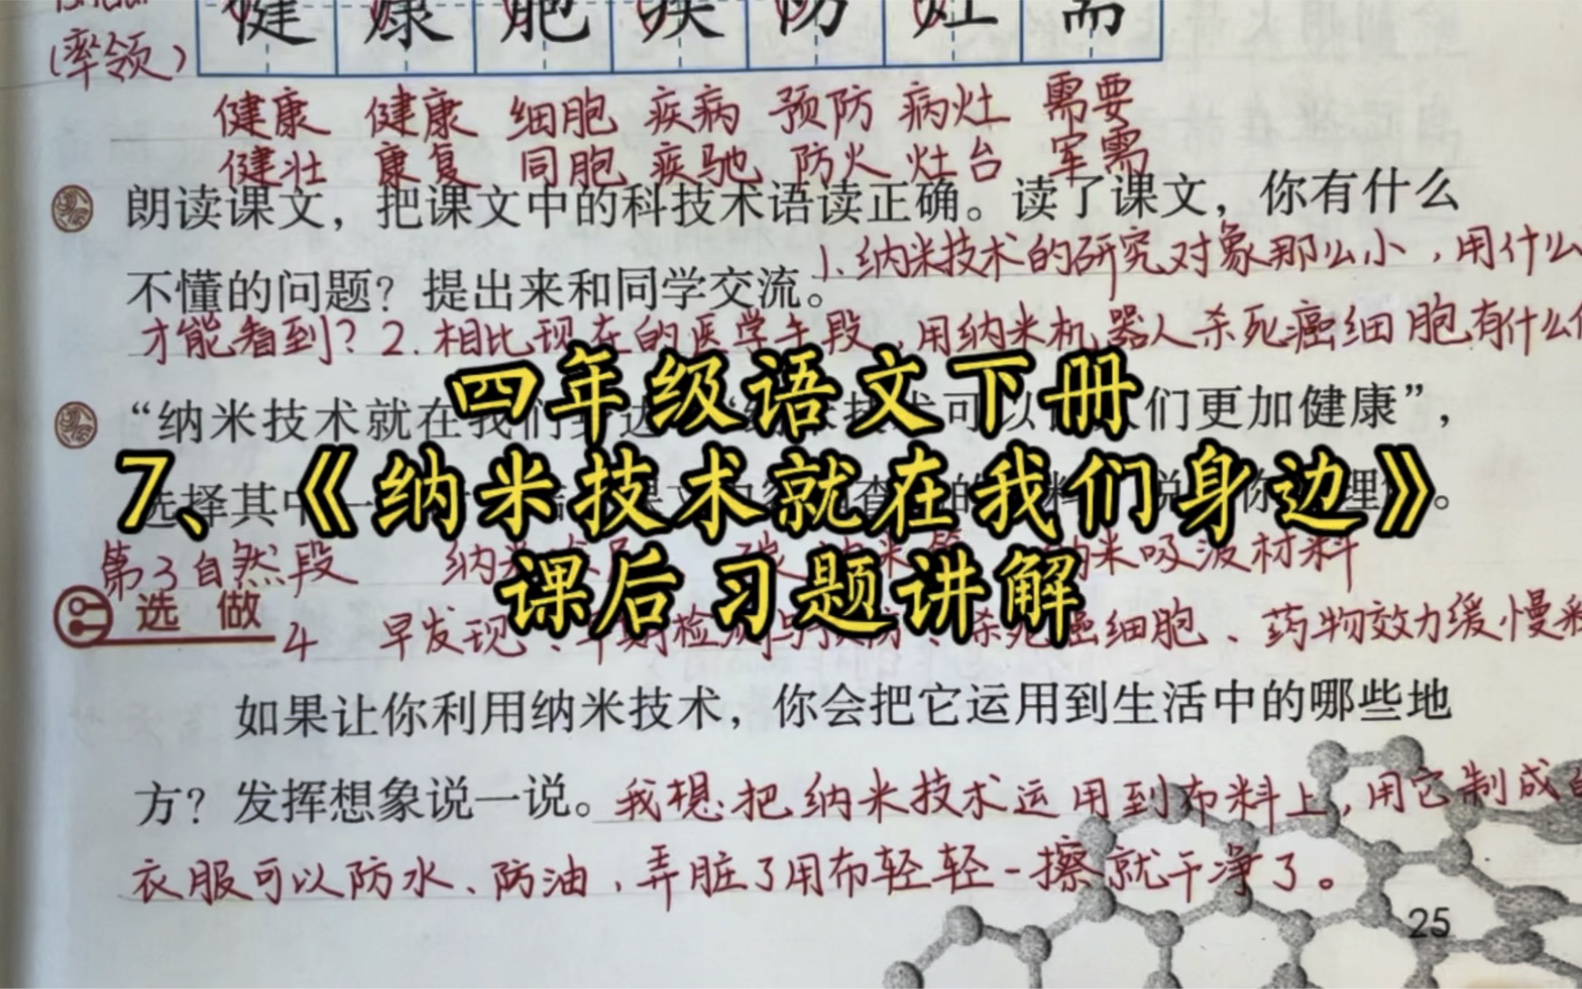 (率领)
健 康 胞 疾 防 灶 需
健康 健康 细胞 疾病 预防 病灶 需要
健壮 康复 同胞 疾驰 防火 灶台 军需
朗读课文，把课文中的科技术语读正确。读了课文，你有什么
不懂的问题？提出来和同学交流。1.纳米技术的研究对象那么小，用什么
才能看到？2.相比现在的医学手段，用纳米机器人杀死癌细胞有什么
四年级语文下册
“纳米技术就在我们 可以 们更加健康”，
7、《纳米技术就在我们身边》
选择其中一 的 料 说 你 理 。
第3自然段 纳米 米吸波材料
课后习题讲解
选做
4 早发现、早期检测与 杀死癌细胞、药物效力缓慢释
如果让你利用纳米技术，你会把它运用到生活中的哪些地
方？发挥想象说一说。我想把纳米技术运用到布料上，用它制成
衣服可以防水、防油，弄脏了用布轻轻一擦就干净了。
25